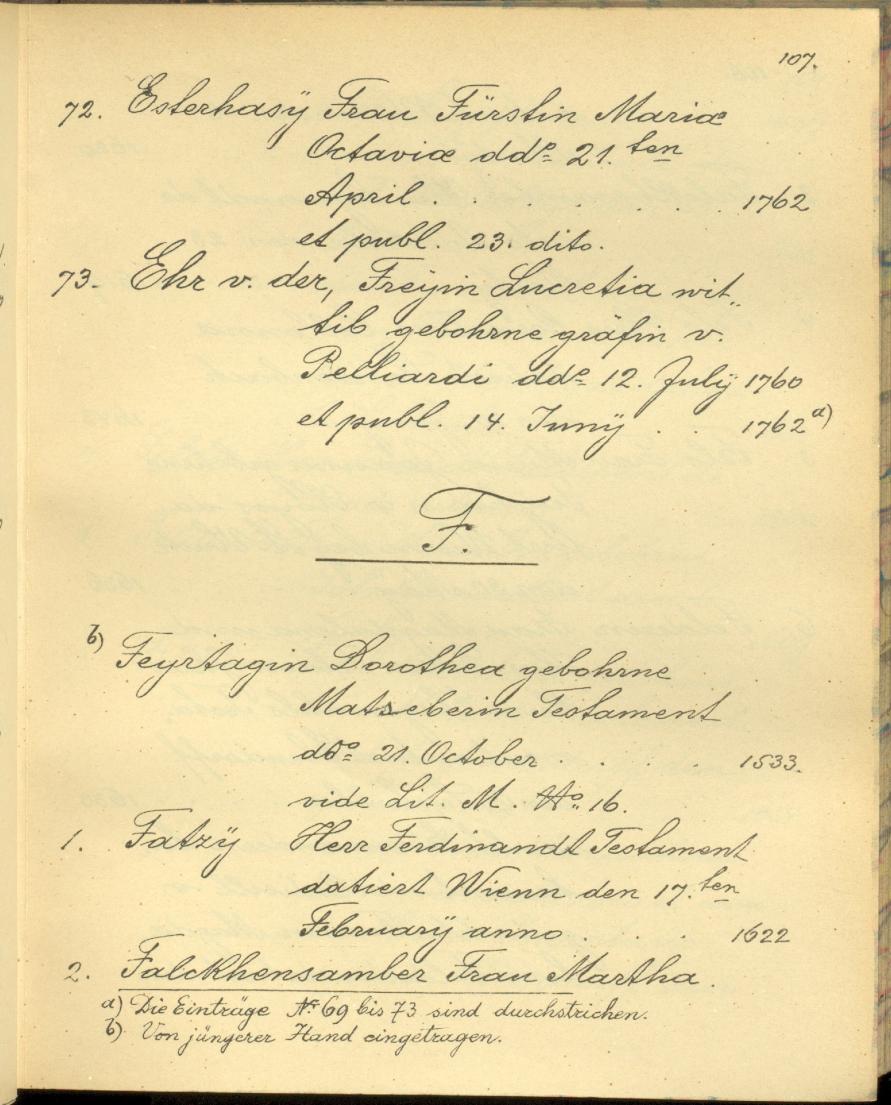 107.
72. Esterhasÿ Frau Fürstin Mariæ
Octaviæ dd°= 21.ten
April . . . . . . . 1762
et publ. 23. dito.
73. Ehr v. der, Freÿin Lucretia wit„
tib gebohrne gräfin v.
Pelliardi dd°= 12. Julÿ 1760
et publ. 14. Junÿ . . 1762 a)
F.
b) Feyrtagin Dorothea gebohrne
Matseberin Testament
dd°= 21. October . . . . 1533.
vide Lit. M. N°„ 16.
1. Fatzÿ Herr Ferdinandt Testament
datiert Wienn den 17.ten
Februarÿ anno . . . 1622
2. Falckhensamber Frau Martha.
a) Die Einträge N° 69 bis 73 sind durchstrichen.
b) Von jüngerer Hand eingetragen.